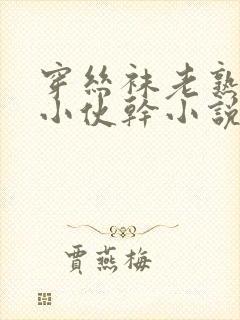 穿絲袜老熟
小伙幹小説
賈燕梅